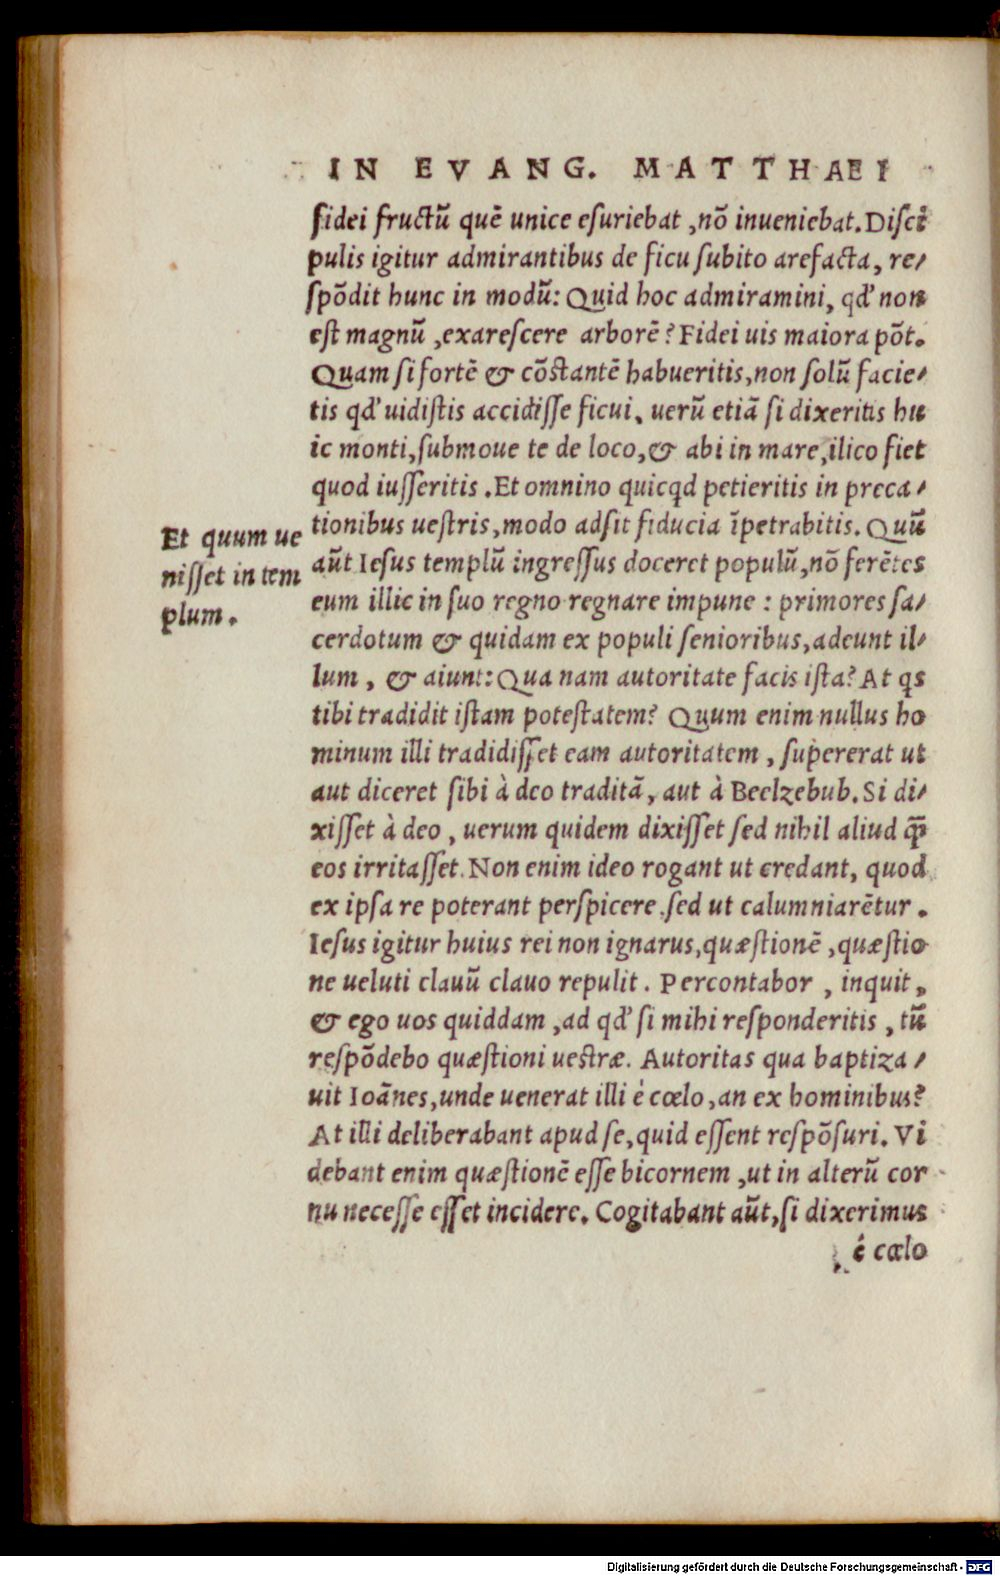 IN EVANG. MATTHAEI
fidei fructũ quẽ unice esuriebat, nõ inueniebat. Disci
pulis igitur admirantibus de ficu subito arefacta, re⸗
spõdit hunc in modũ: Quid hoc admiramini, qđ non
est magnũ, exarescere arborẽ? Fidei uis maiora põt.
Quam si fortẽ & cõstantẽ habueritis, non solũ facie⸗
tis qđ uidistis accidisse ficui, uerũ etiã si dixeritis hu
ic monti, submoue te de loco, & abi in mare, ilico fiet
quod iusseritis. Et omnino quicqd petieritis in preca⸗
tionibus uestris, modo adsit fiducia ĩpetrabitis. Quũ
aũt Iesus templũ ingressus doceret populũ, nõ ferẽtes
eum illic in suo regno regnare impune: primores sa⸗
cerdotum & quidam ex populi senioribus, adeunt il⸗
lum, & aiunt: Qua nam autoritate facis ista? At qs
tibi tradidit istam potestatem? Quum enim nullus ho
minum illi tradidisset eam autoritatem, supererat ut
aut diceret sibi à deo traditã, aut à Beelzebub. Si di⸗
xisset à deo, uerum quidem dixisset sed nihil aliud q̃
eos irritasset. Non enim ideo rogant ut credant, quod
ex ipsa re poterant perspicere, sed ut calumniarẽtur.
Iesus igitur huius rei non ignarus, quæstionẽ, quæstio
ne ueluti clauũ clauo repulit. Percontabor, inquit,
& ego uos quiddam, ad qđ si mihi responderitis, tũ
respõdebo quæstioni uestræ. Autoritas qua baptiza⸗
uit Ioãnes, unde uenerat illi é cœlo, an ex hominibus?
At illi deliberabant apud se, quid essent respõsuri. Vi
debant enim quæstionẽ esse bicornem, ut in alterũ cor
nu necesse esset incidere. Cogitabant aũt, si dixerimus
é cœlo
Et quum ue
nisset in tem
plum.
Digitalisierung gefördert durch die Deutsche Forschungsgemeinschaft - DFG